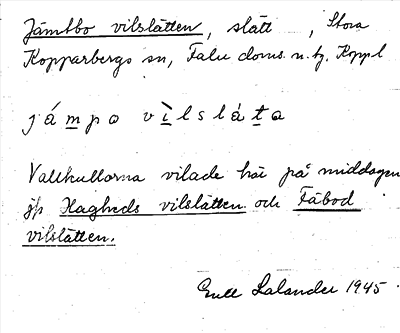 Jämtbo vilslätten, slätt, Stora
Kopparbergs sn, Falu doms. n. tg. Koppl
jámpa vìlsláta
Vallkullorna vilade här på middagen
jfr Hagheds vilslätten och Fäbod
vilslätten.
Lalander 1945.